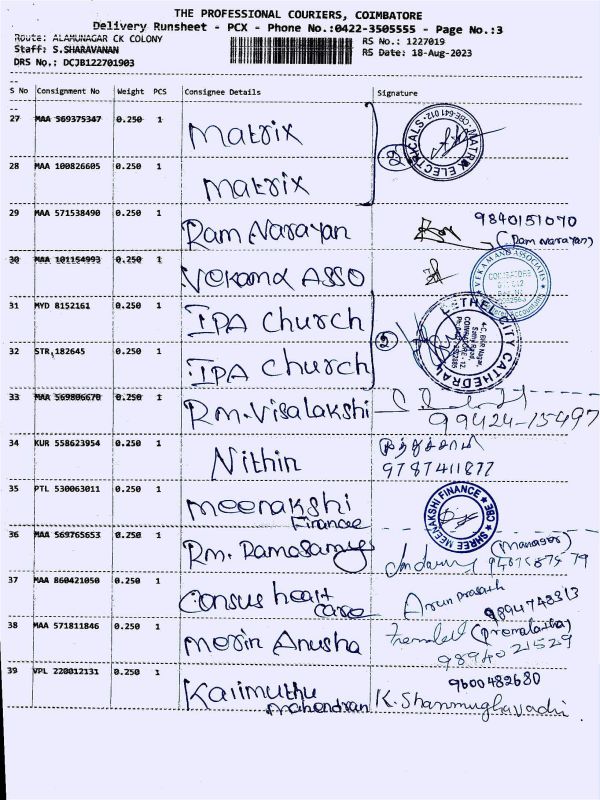 THE PROFESSIONAL COURIERS, COIMBATORE
Delivery Runsheet - PCX - Phone No.:0422-3505555 - Page No.:3
Route: ALAMUNAGAR CK COLONY
RS No.: 1227019
Staff: S.SHARAVANAN
RS Date: 18-Aug-2023
DRS No.: DCJB122701903
S No Consignment No Weight PCS Consignee Details Signature
27 MAA 569375347 0.250 1 Matrix
MATRIX ELECTRICALS CBE-641 012.
28 MAA 100826605 0.250 1 Matrix
29 MAA 571538490 0.250 1 Ram Narayan 9840151070
(Ram Narayan)
30 MAA 101154993 0.250 1 Vekamd ASSO
COIMBATORE
31 MYD 8152161 0.250 1 IPA church
BETHEL CITY CATHEDRAL
32 STR 182645 0.250 1 IPA church
33 MAA 569806670 0.250 1 Rm. Visalakshi 99424-15497
34 KUR 558623954 0.250 1 Nithin
9787411877
35 PTL 530063011 0.250 1 Meenakshi Finance
SHREE MEENAKSHI FINANCE CBE
36 MAA 569765653 0.250 1 Rm. Ramasamy (Manager)
37 MAA 860421050 0.250 1 Consus heart care Arun prasath
9894743313
38 MAA 571811846 0.250 1 Merin Anusha (Premalatha)
9894021529
39 VPL 220012131 0.250 1 Kalimuthu Mahendran 9600482680
K. Shanmughavadi